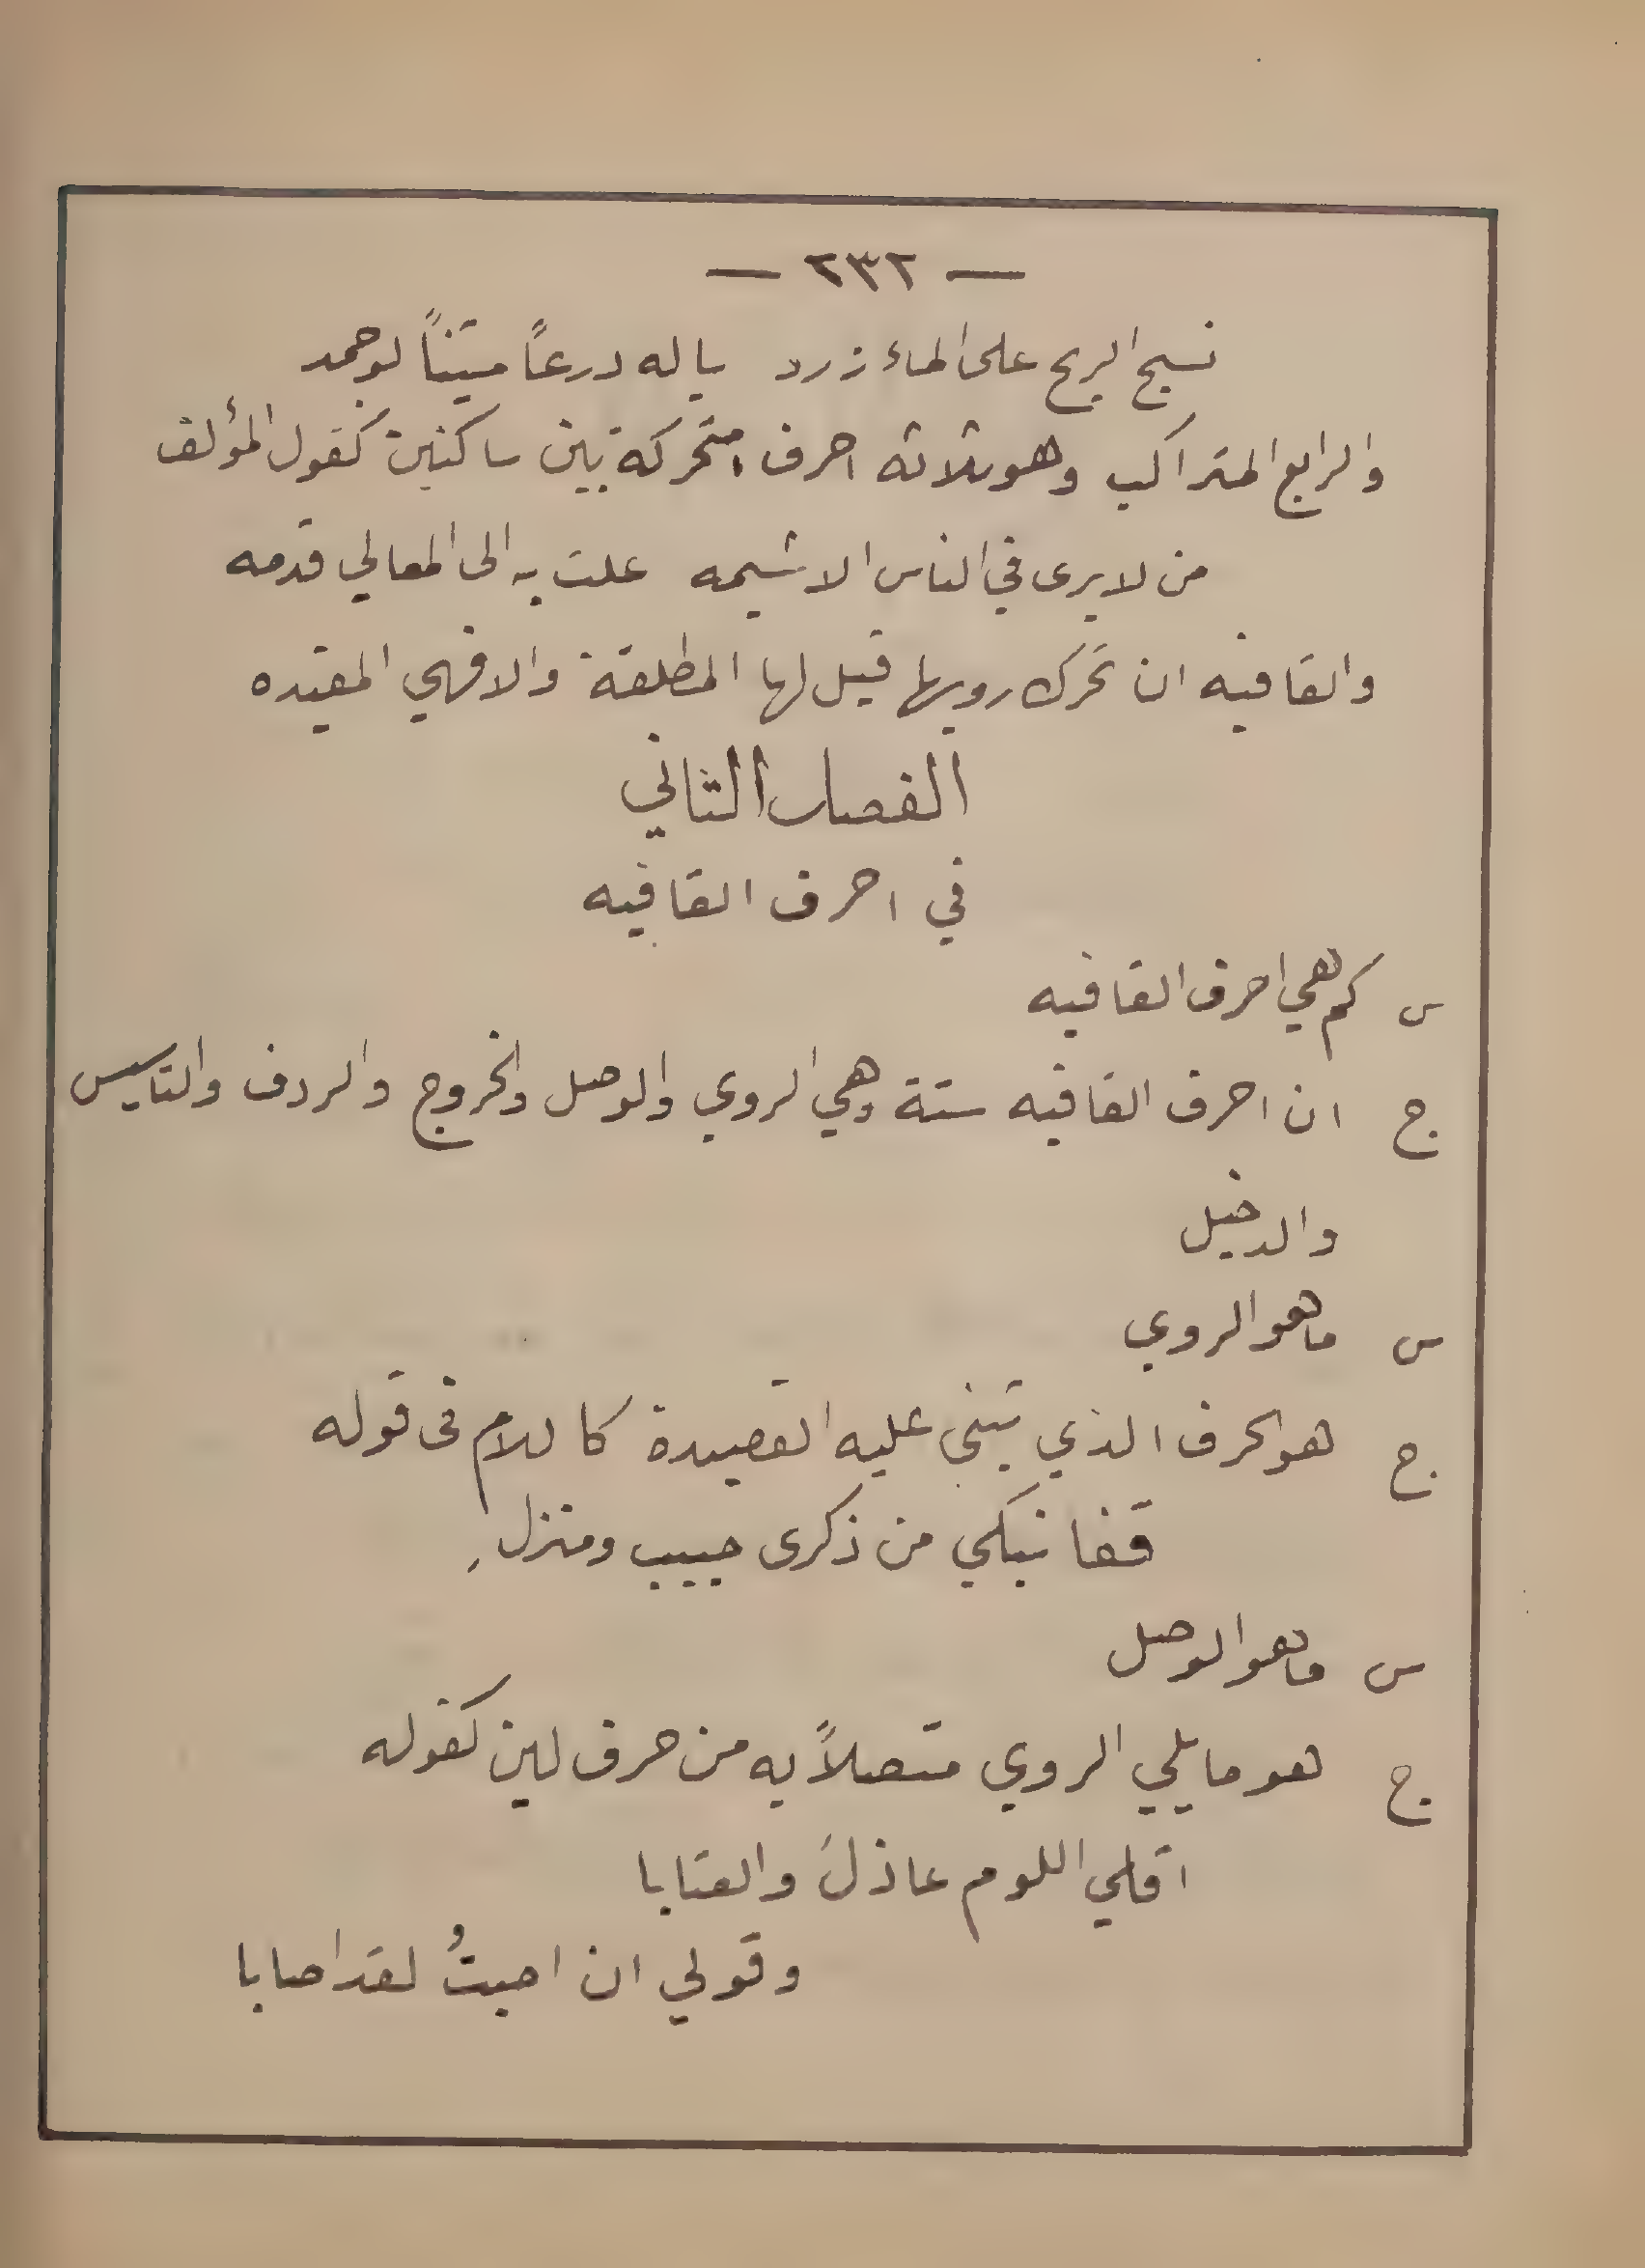 — ٢٣٢ —
نسج الريح على الماء زرد ياله درعاً متيناً لوجمد
والرابع المتراكب وهو ثلاثه احرف متحركة بين ساكنين كقول المؤلف
من لايرى في الناس الا شيمه علت به الى المعالي قدمه
والقافيه ان تحرك رويها قيل لها المطلقة والا فهي المقيده
الفصل الثاني
في احرف القافيه
س كم هي احرف القافيه
ج ان احرف القافيه ستة وهي الروي والوصل والخروج والردف والتاسيس
والدخيل
س ماهو الروي
ج هو الحرف الذي تبنى عليه القصيدة كاللام فى قوله
قفا نبكي من ذكرى حبيب ومنزلِ
س ماهو الوصل
ج هو مايلي الروي متصلاً به من حرف لين كقوله
اقلي اللوم عاذلَ والعتابا
وقولي ان اصبتُ لقد اصابا